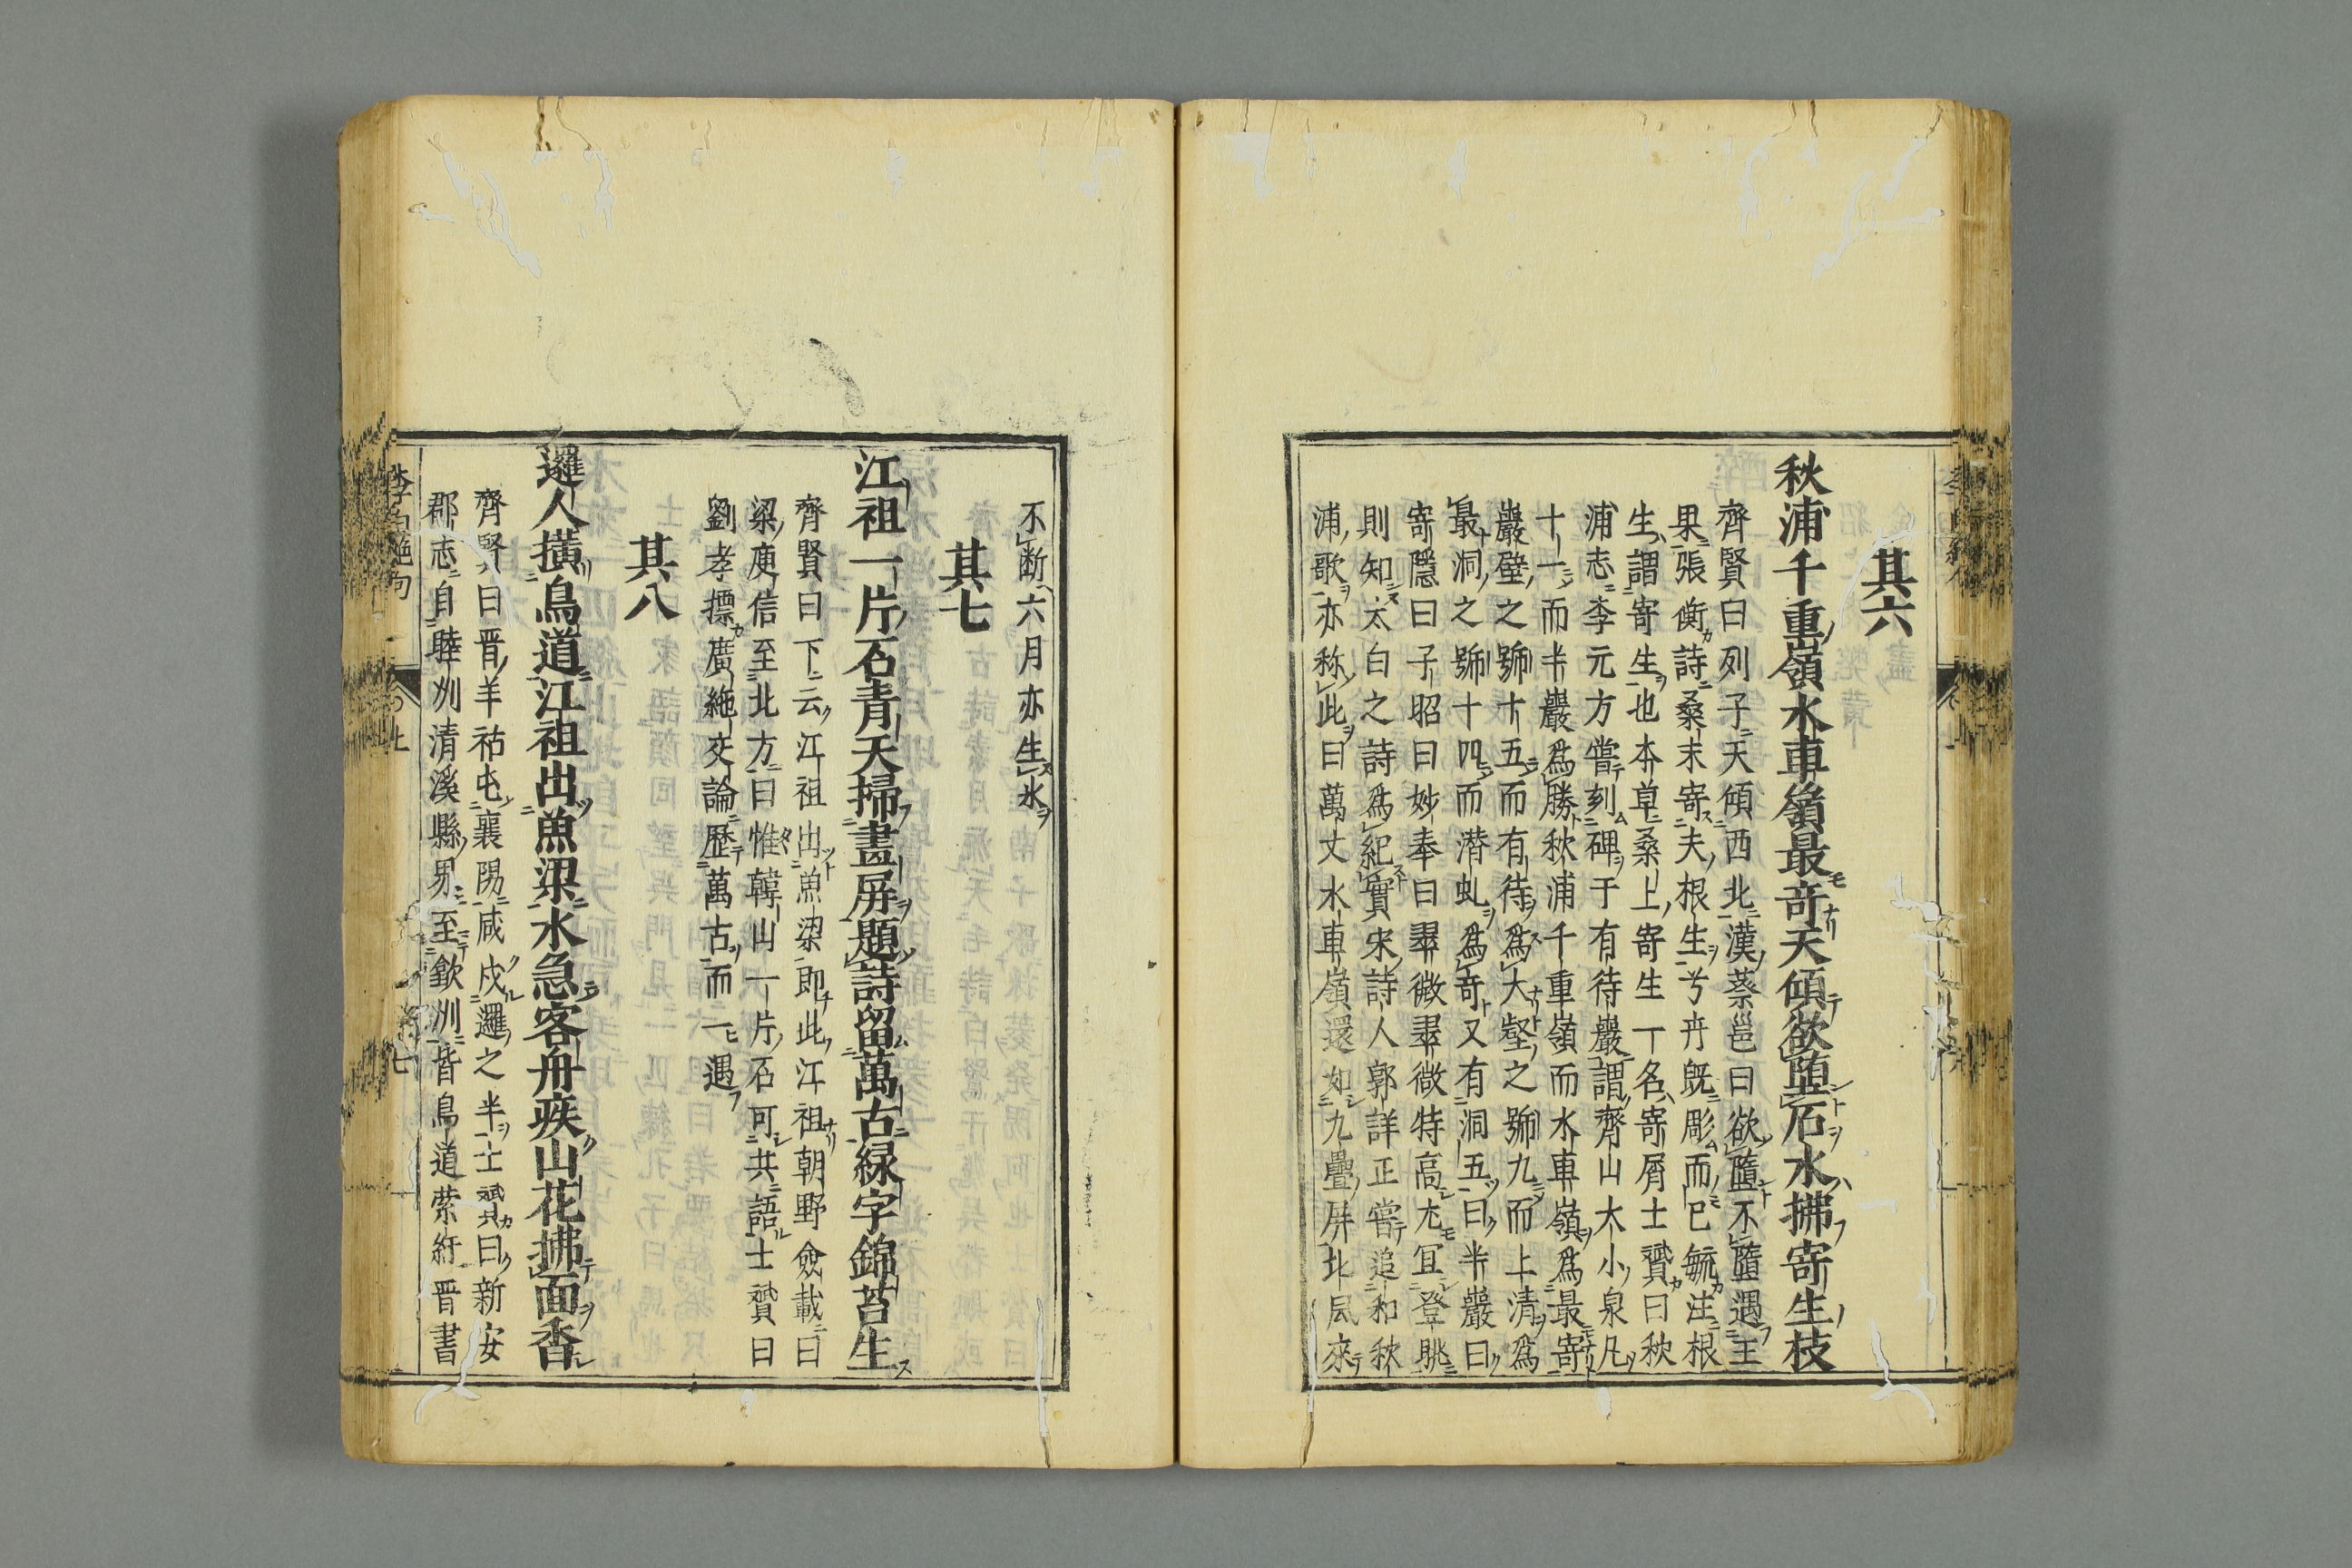 其六
秋浦千重嶺水車嶺最奇天傾欲堕石水拂寄生枝
齊賢曰列子天傾西北漢蔡邕曰欲墮不墮遇王
果張衡詩桑末寄夫根生兮卉既彫而已毓注根
生謂寄生也本草桑上寄生一名寄屑士贇曰秋
浦志李元方嘗刻碑于有待巖謂齊山大小泉凡
十一而半巖為勝秋浦千重嶺而水車嶺為最竒
巖壁之號十五而有待為大壑之號九而上清為
最洞之號十四而潜虬為竒又有洞五曰半巖曰
寄隱曰子昭曰妙奉曰翠微翠微特高尤宜登眺
則知太白之詩為紀實宋詩人郭詳正嘗追和秋
浦歌亦称此曰萬丈水車嶺還如九疊屏北風來
不断六月亦生氷
其七
江祖一片石青天掃畫屏題詩留萬古緑字錦苔生
齊賢曰下云江祖出魚梁即此江祖朝野僉載曰
梁庾信至北方曰惟韓山一片石可共語士贇曰
劉孝摽廣絶交論歷萬古而一遇
其八
邏人横鳥道江祖出魚梁水急客舟疾山花拂面香
齊賢曰晋羊祜屯襄陽咸戍邏之半士贇曰新安
郡志自睦州清溪縣界至欽州皆鳥道縈紆晋書
李白絶句